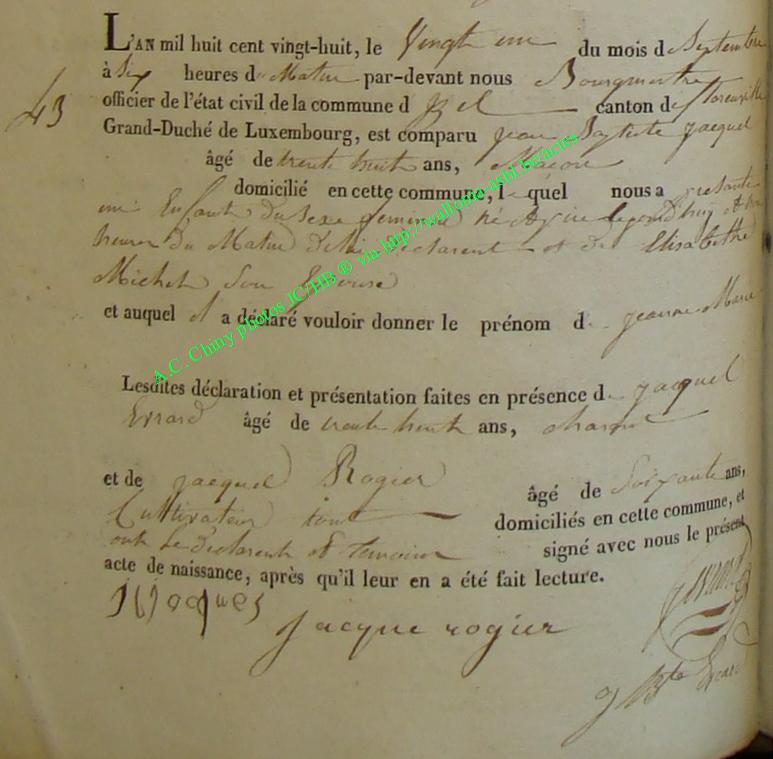 L'AN mil huit cent vingt-huit, le Vingt une du mois d Septembre
à Six heures du Matin par-devant nous Bourgmestre
43
officier de l'état civil de la commune d Izel canton de florenville
Grand-Duché de Luxembourg, est comparu jean Baptiste jacquel
âgé de trente huit ans, Macon
domicilié en cette commune, le quel nous a presenté
une Enfant du Sexe feminin né
heures du Matin de lui declarent et de Elisabethe
Michel Son Epouse
et auquel il a déclaré vouloir donner le prénom de jeanne Marie
Lesdites déclaration et présentation faites en présence de jacquel
Errard âgé de trente huit ans,
et de jacquel Rogier âgé de Soixante ans,
Cultivateur tout domiciliés en cette commune, et
ont le declarent et temoins signé avec nous le présent
acte de naissance, après qu'il leur en a été fait lecture.
jacque rogier
A.C. Chiny photos IC/HB ® via http://wallonia-asbl.be/actes